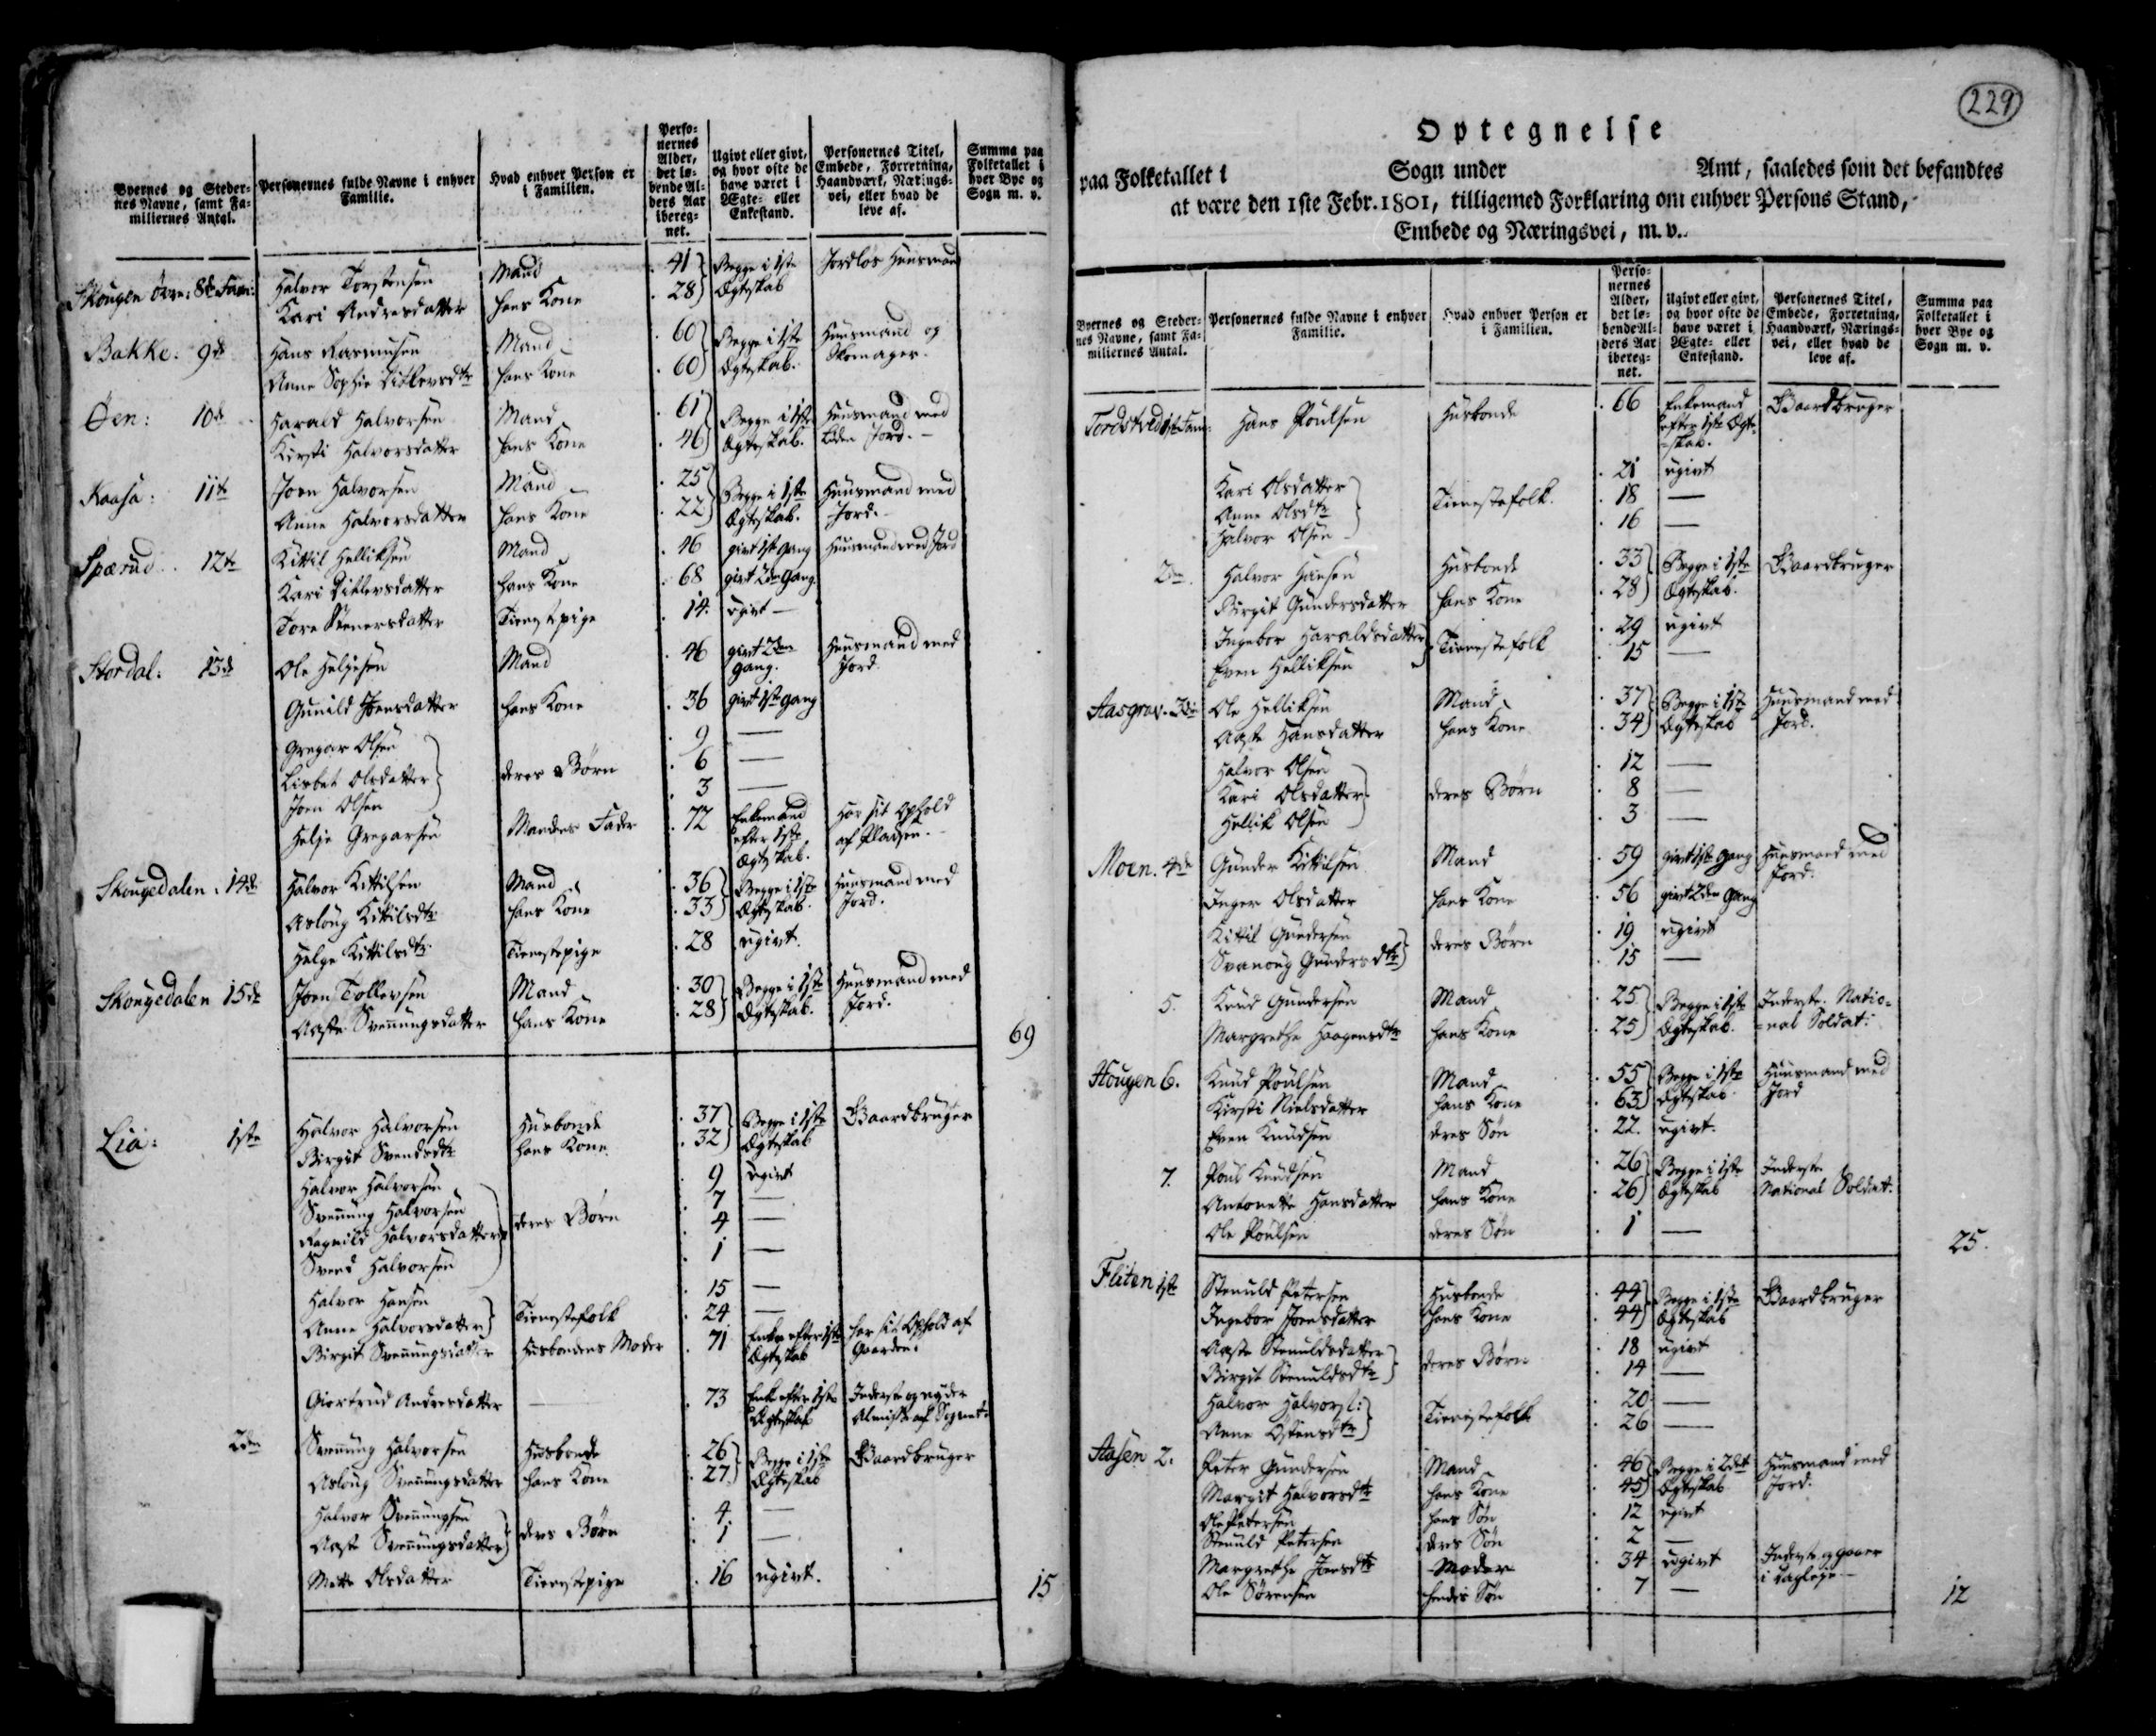 Byernes og Steder-
nes Navne, samt Fa-
miliernes Antal.
Personernes fulde Navne i enhver
Familie.
Hvad enhver Person er
i Familien.
Perso-
nernes
Alder,
det lø-
bende Al-
ders Aar
ibereg-
net.
Ugivt eller givt,
og hvor ofte de
have været i
Ægte- eller
Enkestand.
Personernes Titel,
Embede, Forretning,
Haandværk, Nærings-
vei, eller hvad de
leve af.
Summa paa
Folketallet i
hver Bye og
Sogn m. v.
Skougen øvre: 8de Fam: Halvor Torstensen Mand 41 Begge i 1ste Jordløs Huusmand
Kari Andersdatter hans Kone 28 Ægteskab
Bakke: 9de Hans Rasmusen Mand 60 Begge i 1ste Huusmand og
Anne Sophie Ditlevsdtr hans Kone 60 Ægteskab. Skomager.
Øen: 10de Harald Halvorsen Mand 61 Begge i 1ste Huusmand med
Kirsti Halvorsdatter hans Kone 46 Ægteskab. liden Jord.
Kaasa: 11te Joen Halvorsen Mand 25 Begge i 1ste Huusmand med
Anne Halvorsdatter hans Kone 22 Ægteskab. Jord.
Spærud. 12te Kittil Helliksen Mand 46 givt 1ste Gang Huusmand med Jord
Kari Ditlevsdatter hans Kone 68 givt 2den Gang
Tore Steenersdatter Tienestepige 14 ugivt —
Stordal: 13de Ole Heljesen Mand 46 givt 2den Huusmand med
Gang. Jord.
Gunild Joensdatter hans Kone 36 givt 1ste Gang
Gregar Olsen 9 —
Lisbet Olsdatter deres Børn 6 —
Joen Olsen 3 —
Helje Gregarsen Mandens Fader 72 Enkemand Har sit Ophold
efter 1ste af Pladsen.
Ægteskab.
Skougedalen: 14de Halvor Kittilsen Mand 36 Begge i 1ste Huusmand med
Asloug Kittilsdtr hans Kone 33 Ægteskab. Jord.
Helge Kittilsdtr Tienestepige 28 ugivt.
Skougedalen 15de Joen Tollevsen Mand 30 Begge i 1ste Huusmand med
Aaste Svennungsdatter hans Kone 28 Ægteskab. Jord.
69
Lia: 1ste Halvor Halvorsen Husbonde 37 Begge i 1ste Gaardbruger
Birgit Svendsdtr hans Kone 32 Ægteskab
Halvor Halvorsen 9 ugivt
Svennung Halvorsen 7 —
Ragnild Halvorsdatter deres Børn 4 —
Svend Halvorsen 1 —
Halvor Hansen 15 —
Anne Halvorsdatter Tienestefolk 24 —
Birgit Svennungsdatter Husbondens Moder 71 Enke efter 1ste har sit Ophold af
Ægteskab Gaarden.
Giertrud Andersdatter — 73 Enke efter 1ste Inderste og nyder
Ægteskab Almisse af Sognet.
2den Svennung Halvorsen Husbonde 26 Begge i 1ste Gaardbruger
Asloug Svennungsdatter hans Kone 27 Ægteskab
Halvor Svennungsen 4 —
Aaste Svennungsdatter deres Børn 1 —
Mette Olsdatter Tienestepige 16 ugivt.
15
229
Optegnelse
paa Folketallet i Sogn under Amt, saaledes som det befandtes
at være den 1ste Febr. 1801, tilligemed Forklaring om enhver Persons Stand,
Embede og Næringsvei, m. v.
Byernes og Steder-
nes Navne, samt Fa-
miliernes Antal.
Personernes fulde Navne i enhver
Familie.
Hvad enhver Person er
i Familien.
Perso-
nernes
Alder,
det lø-
bende Al-
ders Aar
ibereg-
net.
Ugivt eller givt,
og hvor ofte de
have været i
Ægte- eller
Enkestand.
Personernes Titel,
Embede, Forretning,
Haandværk, Nærings-
vei, eller hvad de
leve af.
Summa paa
Folketallet i
hver Bye og
Sogn m. v.
Tordstved 1ste Fam: Hans Poulsen Husbonde 66 Enkemand Gaardbruger
efter 1ste Ægte-
skab.
Kari Olsdatter 21 ugivt
Anne Olsdtr Tienestefolk. 18 —
Halvor Olsen 16 —
2den. Halvor Hansen Husbonde 33 Begge i 1ste Gaardbruger
Birgit Gundersdatter hans Kone 28 Ægteskab.
Ingebor Haraldsdatter Tienestefolk 29 ugivt
Even Helliksen 15 —
Aasgrav. 3die Ole Helliksen Mand 37 Begge i 1ste Huusmand med
Aaste Hansdatter hans Kone 34 Ægteskab Jord.
Halvor Olsen 12 —
Kari Olsdatter deres Børn 8 —
Hellik Olsen 3 —
Moen. 4de Gunder Kittilsen Mand 59 givt 1ste Gang Huusmand med
Jord.
Inger Olsdatter hans Kone 56 givt 2den Gang
Kittil Gundersen deres Børn 19 ugivt
Svanoug Gundersdtr 15 —
5. Knud Gundersen Mand 25 Begge i 1ste Inderste. Natio-
Margrethe Haagensdtr hans Kone 25 Ægteskab. =nal Soldat.
Hougen 6. Knud Poulsen Mand 55 Begge i 1ste Huusmand med
Kirsti Nielsdatter hans Kone 63 Ægteskab Jord
Even Knudsen deres Søn 22. ugivt.
7. Poul Knudsen Mand 26 Begge i 1ste Inderste
Antonette Hansdatter hans Kone 26 Ægteskab National Soldat.
Ole Poulsen deres Søn 1 —
25.
Fliten 1ste Stenuld Petersen Husbonde 44 Begge i 1ste Gaardbruger
Ingebor Joensdatter hans Kone 44 Ægteskab
Aaste Stenuldsdatter deres Børn 18 ugivt
Birgit Stenuldsdtr 14 —
Halvor Halvors: Tienestefolk 20 —
Anne Østensdtr 26 —
Aasen 2. Peter Gundersen Mand 46 Begge i 2det Huusmand med
Margit Halvorsdtr hans Kone 45 Ægteskab Jord.
Ole Petersen hans Søn 12 ugivt
Stenuld Petersen deres Søn 2 —
Margrethe Joensdtr Moder 34 ugivt Inderste og gaaer
Ole Sørensen hendes Søn 7 — i Dagleje
12